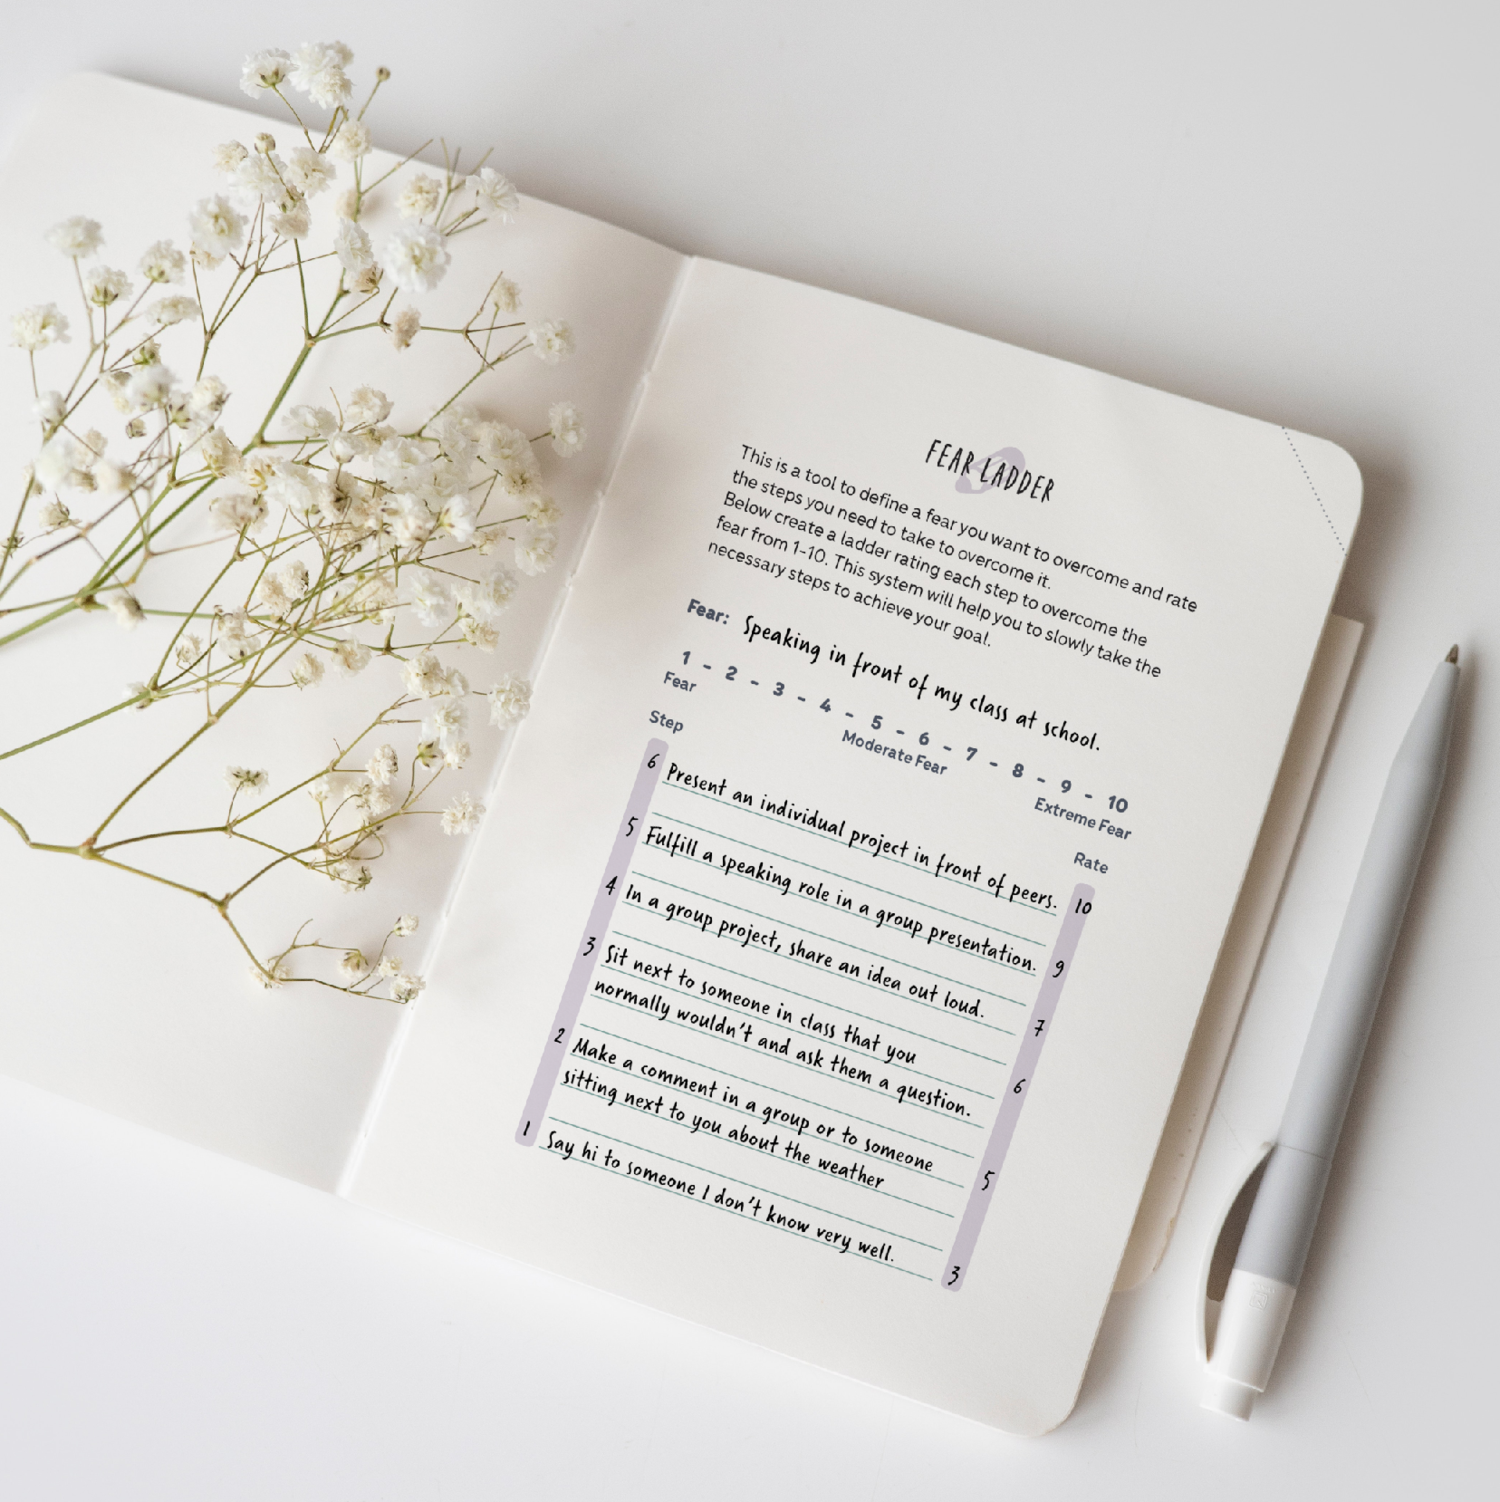 FEAR LADDER
This is a tool to define a fear you want to overcome and rate
the steps you need to take to overcome it.
Below create a ladder rating each step to overcome the
fear from 1-10. This system will help you to slowly take the
necessary steps to achieve your goal.
Fear: Speaking in front of my class at school.
1 - 2 - 3 - 4 - 5 - 6 - 7 - 8 - 9 - 10
Fear Moderate Fear Extreme Fear
Step Rate
6 Present an individual project in front of peers. 10
5 Fulfill a speaking role in a group presentation. 9
4 In a group project, share an idea out loud. 7
3 Sit next to someone in class that you
normally wouldn't and ask them a question. 6
2 Make a comment in a group or to someone
sitting next to you about the weather 5
1 Say hi to someone I don't know very well. 3